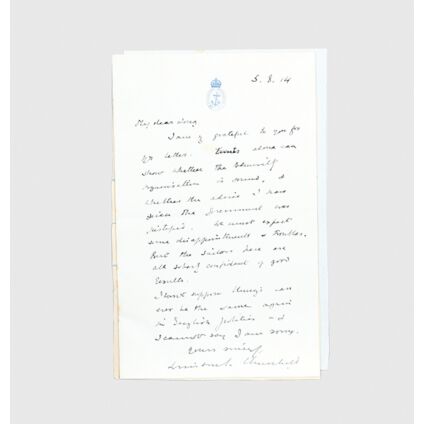 5. 8. 14
My dear
I am grateful to you for
yr letter. Times alone can
show whether the Admiralty
organisation is sound, &
whether the advice I have
given the Government was
justified. We must expect
some disappointments & troubles.
But the sailors here are
all confident of good
results.
I don't suppose things can
ever be the same again
in English politics and
I cannot say I am sorry.
Yours
Winston Churchill